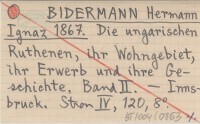 BIDERMANN Hermann
Ignaz 1867. Die ungarischen
Ruthenen, ihr Wohngebiet,
ihr Erwerb und ihre Ge-
schichte. Band II. — Inns-
bruck. Stron IV, 120, 8°.